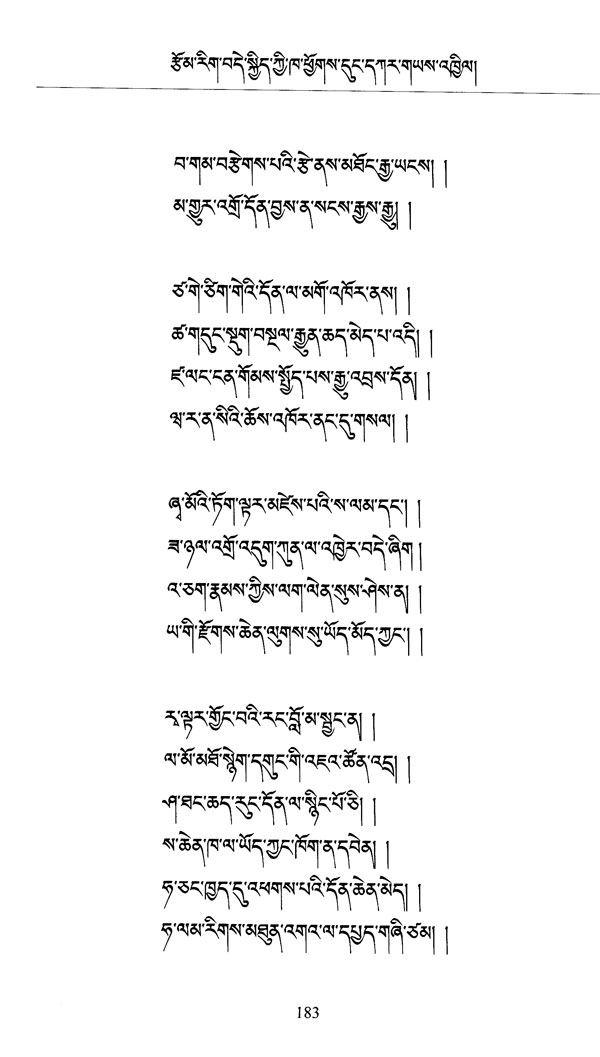 རྩོམ་རིག་བདེ་སྐྱིད་ཀྱི་ཁ་ཕྱོགས་དུང་དཀར་གཡས་འཁྱིལ།
བ་གམ་བརྩེགས་པའི་རྩེ་ནས་མཐོང་རྒྱ་ཡངས། །
མ་གྱུར་འགྲོ་དོན་བྱས་ན་སངས་རྒྱས་རྒྱུ། །
ཙ་གེ་ཙིག་གེའི་དོན་ལ་མགོ་འཁོར་ནས། །
ཚ་གདུང་སྡུག་བསྔལ་རྒྱུན་ཆད་མེད་པ་འདི། །
ཛ་ལང་ངན་གོམས་སྤྱོད་པས་རྒྱུ་འབྲས་དོན། །
ཝ་ར་ན་སིའི་ཆོས་འཁོར་ནང་དུ་གསལ། །
ཞྭ་མོའི་ཏོག་ལྟར་མཛེས་པའི་ས་ལམ་དང་། །
ཟ་ཉལ་འགྲོ་འདུག་ཀུན་ལ་འཁྱེར་བདེ་ཞིག །
འ་ཅག་རྣམས་ཀྱིས་ལག་ལེན་སུས་ཤེས་ན། །
ཡ་གི་རྫོགས་ཆེན་ལུགས་སུ་ཡོད་མོད་ཀྱང་། །
རྭ་ལྟར་གྱོང་བའི་རང་བློ་མ་སྦྱང་ན། །
ལ་མོ་མཐོ་སྙེག་དགུང་གི་འཇའ་ཚོན་འདྲ། །
ཤ་ཐང་ཆད་རུང་དོན་ལ་སྙིང་པོ་ཅི། །
ས་ཆེན་ཁ་ལ་ཡོད་ཀྱང་ཁོག་ན་དབེན། །
ཧ་ཅང་ཁྱད་དུ་འཕགས་པའི་དོན་ཆེན་མེད། །
ཧ་ལམ་རིགས་མཐུན་འགའ་ལ་དཔྱད་གཞི་ཙམ། །
183